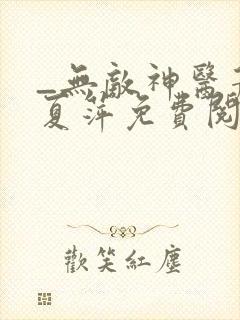 _無敵神醫
夏萍免費閱
歡笑紅塵